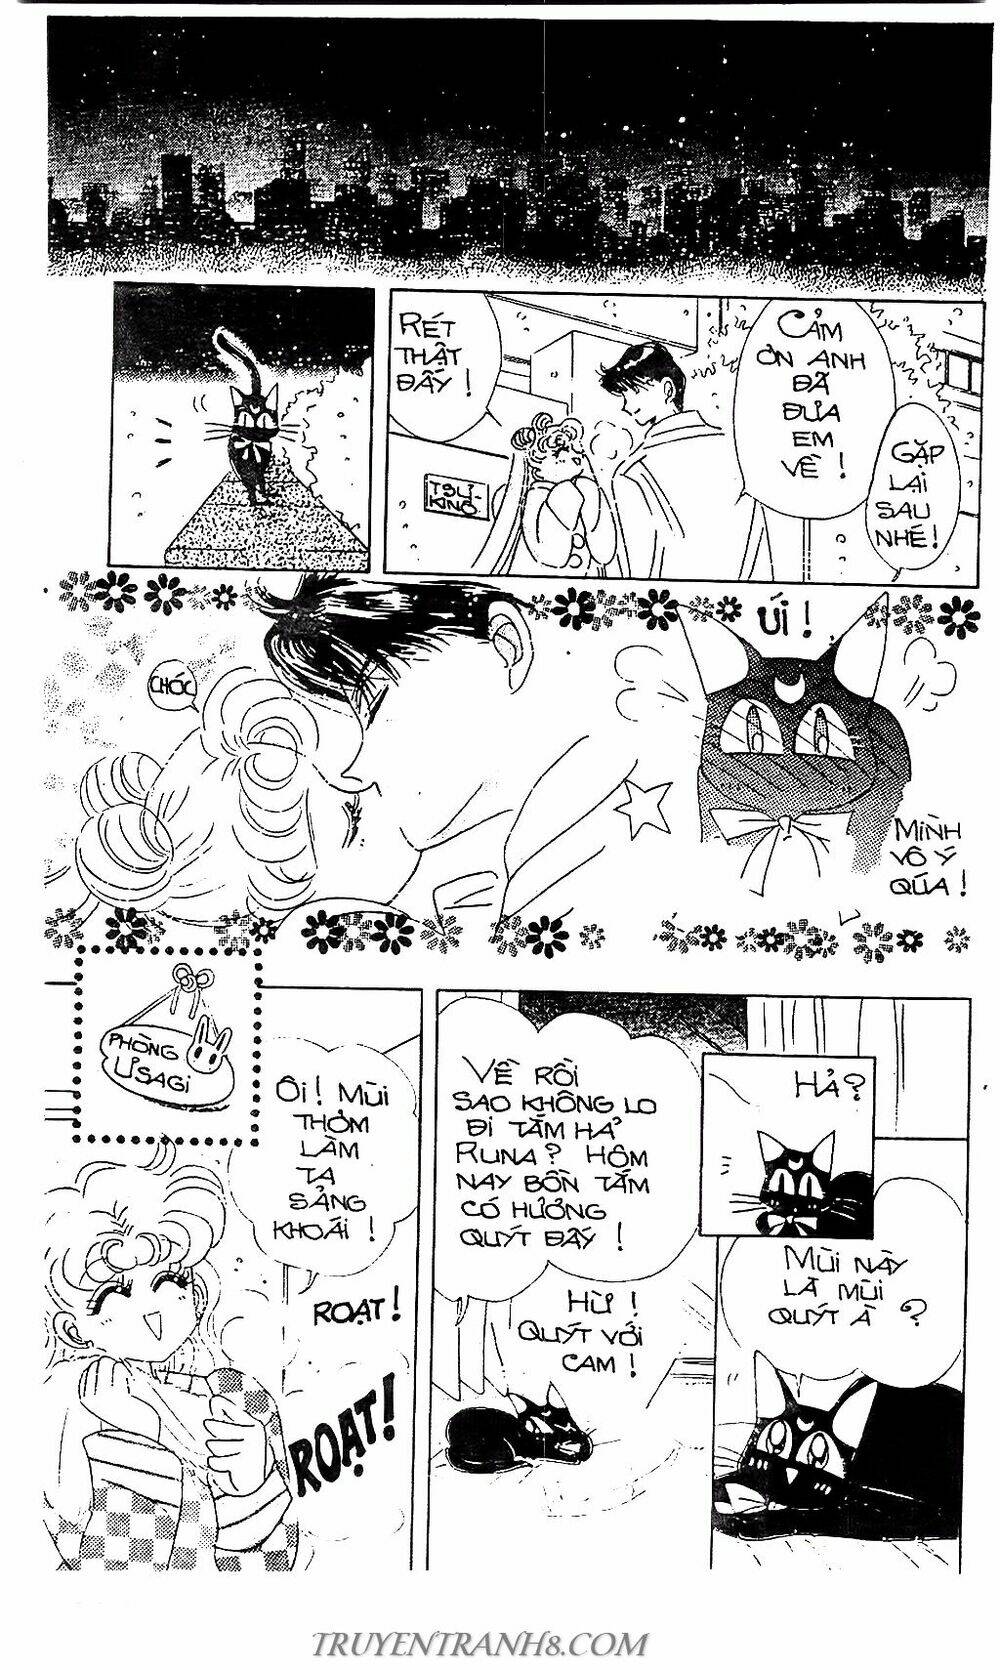 RÉT
THẬT
ĐẤY!
CẢM
ƠN ANH
ĐÃ
ĐƯA
EM
VỀ!
GẶP
LẠI
SAU
NHÉ!
TSU-
KINO
CHÓC
ÚI!
MÌNH
VÔ Ý
QÚA!
PHÒNG
ƯSAGI
ÔI! MÙI
THƠM
LÀM
TA
SẢNG
KHOÁI!
ROẠT!
ROẠT!
VỀ RỒI
SAO KHÔNG LO
ĐI TẮM HẢ
RUNA? HÔM
NAY BỒN TẮM
CÓ HƯƠNG
QUÝT ĐẤY!
HỪ!
QUÝT VỚI
CAM!
HẢ?
MÙI NÀY
LÀ MÙI
QUÝT À?
TRUYENTRANH8.COM